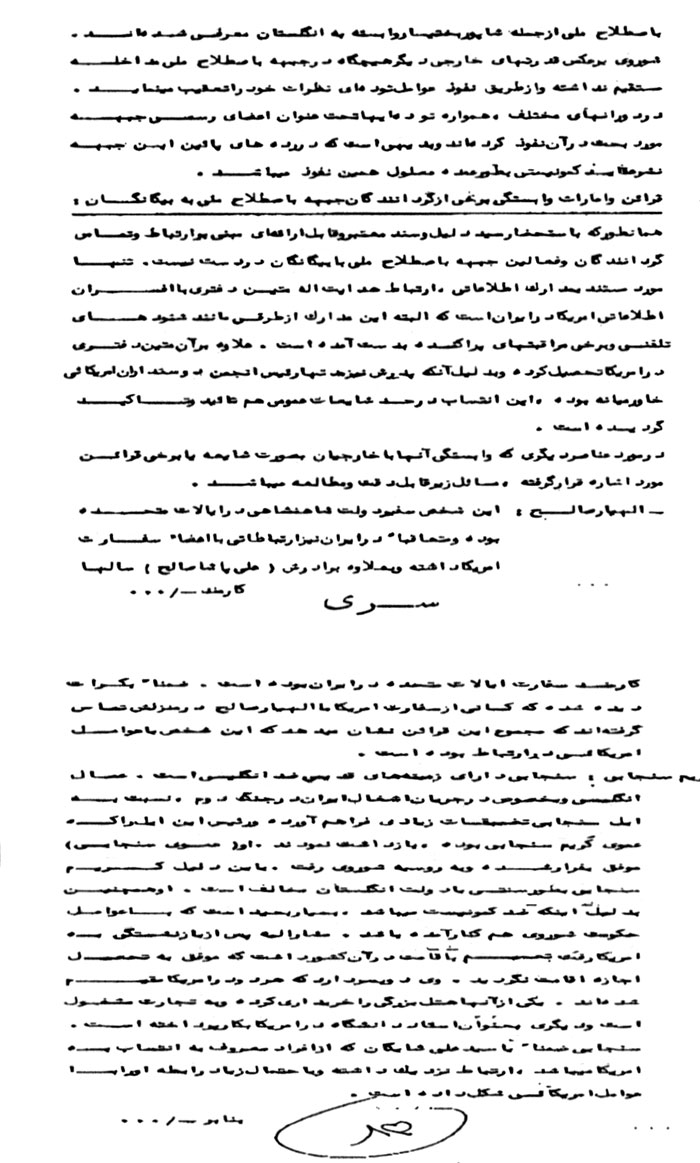 باصطلاح ملی ازجمله شاپوربختیار وابسته به انگستان معرفی شده‌اند .
شوروی برعکس قدرتهای خارجی دیگر هیچگاه در جبهه باصطلاح ملی مداخله
مستقیم نداشته و از طریق نفوذ عوامل توده‌ای نظرات خود را تعقیب مینماید .
در دورانهای مختلف ، همواره توده‌ایها تحت عنوان اعضای رسمی جبهه
مورد بحث در آن نفوذ کرده‌اند و بدیهی است که در رده های پائین این جبهه
نشر عقاید کمونیستی بطور عمده معلول همین نفوذ میباشد .
قرائن و امارات وابستگی برخی از گردانندگان جبهه باصطلاح ملی به بیگانگان :
همانطور که باستحضار رسید دلیل و سند معتبر و قابل ارائه‌ای مبنی بر ارتباط و تماس
گردانندگان و فعالین جبهه باصطلاح ملی با بیگانگان در دست نیست . تنها
مورد مستند بمدارک اطلاعاتی ، ارتباط هدایت اله متین دفتری با افسران
اطلاعاتی امریکا در ایران است که البته این مدارک از طرقی مانند شنود های
تلفنی و برخی مراقبتهای پراکنده بدست آمده است . علاوه بر آن متین دفتری
در امریکا تحصیل کرده و بدلیل آنکه پدرش نیز مدتها رئیس انجمن دوستداران امریکائی
خاورمیانه بوده ، این انتساب در حد شایعات عمومی هم تائید و تاکید
گردیده است .
در مورد عناصر دیگری که وابستگی آنها با خارجیان بصورت شایعه یا برخی قرائن
مورد اشاره قرار گرفته ، مسائل زیر قابل دقت و مطالعه میباشد .
ـ الهیار صالح : این شخص سفیر دولت شاهنشاهی در ایالات متحده
بوده و متعاقبا" در ایران نیز ارتباطاتی با اعضاء سفارت
امریکا داشته و بعلاوه برادرش ( علی پاشا صالح ) سالها
کارمند ـ/۰۰۰
...
سری
کارمند سفارت ایالات متحده در ایران بوده است . ضمنا" بکرات
دیده شده که کسانی از سفارت امریکا با الهیار صالح در منزلش تماس
گرفته‌اند که مجموع این قرائن نشان میدهد که این شخص با عوامل
امریکائی در ارتباط بوده است .
یم سنجابی : سنجابی دارای زمینه‌های قدیمی ضد انگلیسی است . عمال
انگلیسی و بخصوص در جریان اشغال ایران در جنگ دوم ، نسبت به
ایل سنجابی تضییقات زیادی فراهم آورده و رئیس این ایل را که
عموی کریم سنجابی بوده ، بازداشت نمودند . او ( عموی سنجابی )
موفق بفرار شده و به روسیه شوروی رفت . باین دلیل کریم
سنجابی بطور سنتی با دولت انگلستان مخالف است . او همچنین
بدلیل اینکه ضد کمونیست میباشد ، بسیار بعید است که با عوامل
حکومت شوروی هم کنار آمده باشد . مشارالیه پس از بازنشستگی به
امریکا رفت تصمیم باقامت در آن کشور داشت که موفق به تحصیل
اجازه اقامت نگردید . وی دو پسر دارد که هر دو در امریکا مقیم
شده‌اند . یکی از آنها هتل بزرگی را خریداری کرده و به تجارت مشغول
است و دیگری بعنوان استاد دانشگاه در امریکا بکار پرداخته است .
سنجابی ضمنا" با سید علی شایگان که از افراد معروف به انتساب به
امریکا میباشد ، ارتباط نزدیک داشته و با احتمال زیاد رابطه او را با
عوامل امریکائی شکل داده است .
بنابر ـ/۰۰۰
...